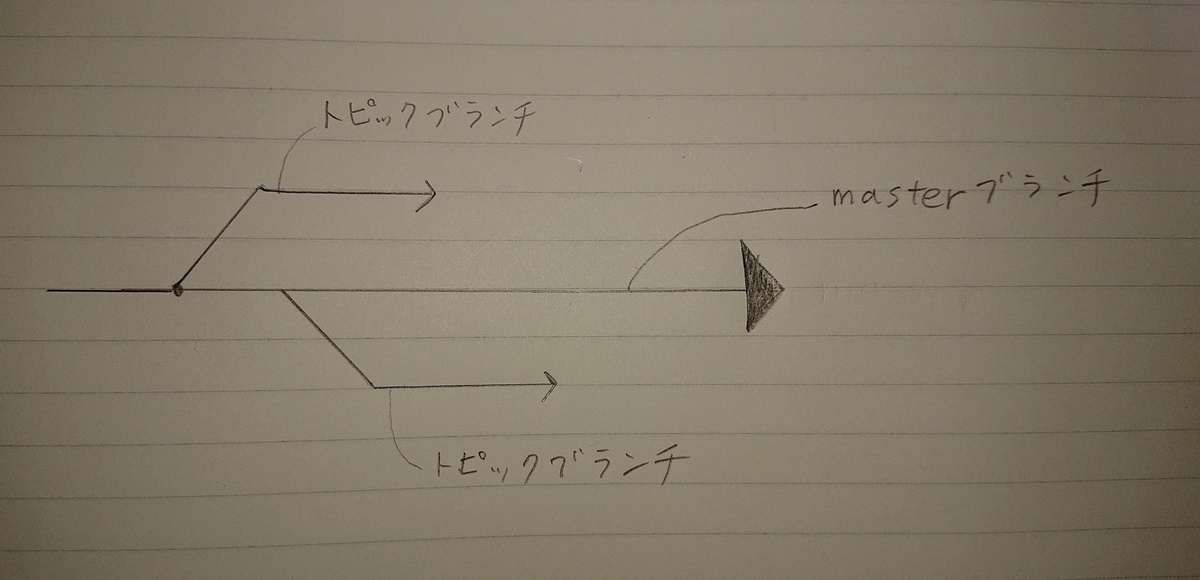 トピックブランチ
masterブランチ
トピックブランチ